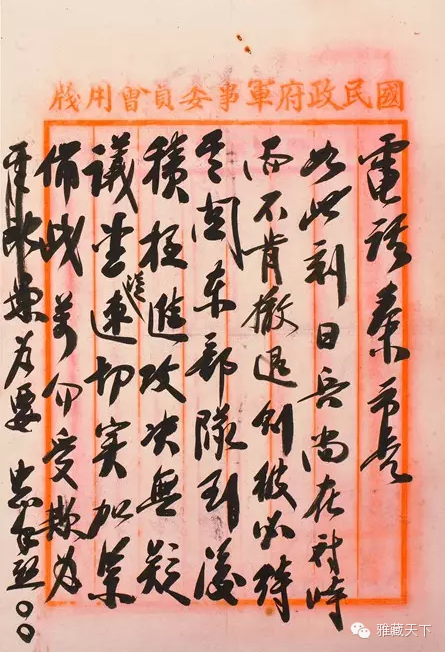 國民政府軍事委員會用牋
電話秦市長
如此刻日兵尚在對峙
而不肯撤退則彼必待
其關東部隊到後
積極進攻決無疑
議望從速切实加緊
備战萬勿受欺為
為要
雅藏天下